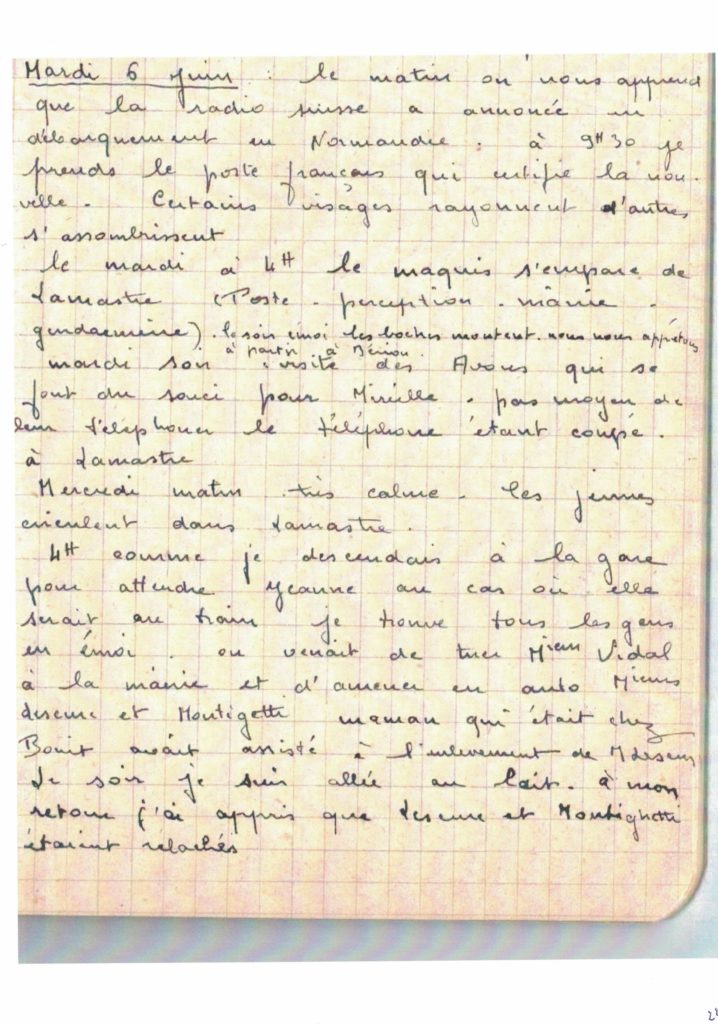 Mardi 6 juin : le matin on nous apprend
que la radio suisse a annoncée un
débarquement en Normandie. à 9H30 je
prends le poste français qui certifie la nou-
velle. Certains visages rayonnent d'autres
s'assombrissent
le mardi à 4H le maquis s'empare de
Lamastre (Poste - perception - mairie -
gendarmerie). le soir émoi les boches montent. nous nous apprêtons
à partir à
mardi soir : visite des Avous qui se
font du souci pour Mireille. pas moyen de
leur téléphoner le téléphone étant coupé.
à Lamastre
Mercredi matin très calme - les jeunes
circulent dans Lamastre.
4H comme je descendais à la gare
pour attendre Jeanne au cas où elle
serait au train je trouve tous les gens
en émoi. on venait de tuer Mieur Vidal
à la mairie et d'amener en auto Mieurs
Descure et Montigetti maman qui était chez
avait assisté à l'enlevement de
Le soir je suis allée au lait. à mon
retour j'ai appris que Lescure et Montighetti
étaient relachés
2